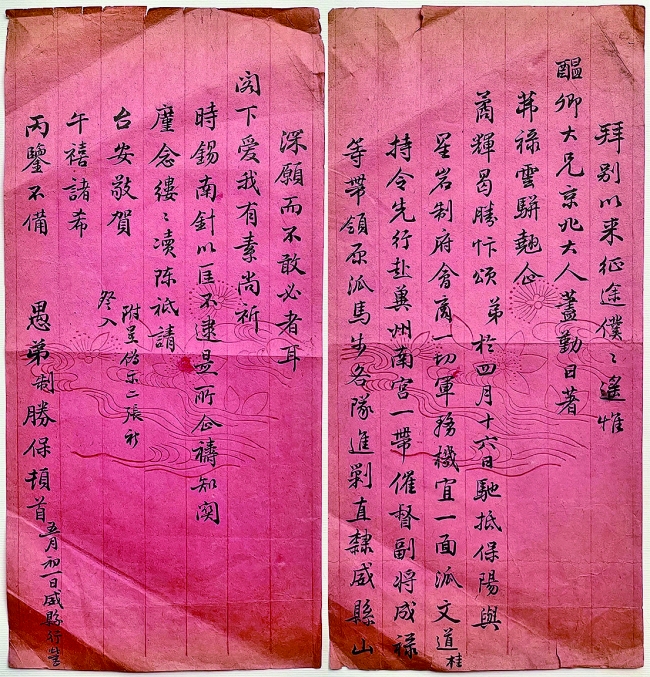 拜别以来征途僕〻遙惟
醖卿大兄京兆大人藎勤日著
茀禄雲駢翹企
喬輝曷勝忭頌弟於四月十六日馳抵保陽與
星岩制府會商一切軍務機宜一面派文道桂
持令先行赴冀州南宫一帶催督副将成禄
等帶領原派馬步各隊進剿直隸威縣山
深願而不敢必者耳
閣下愛我有素尚祈
時錫南針以匡不逮是所企禱知関
廑念縷〻瀆陳祗請
台安敬賀
附呈 示二張祈
詧入
午禧諸希
丙鑒不備 愚弟制勝保頓首 五月初一日威縣行營